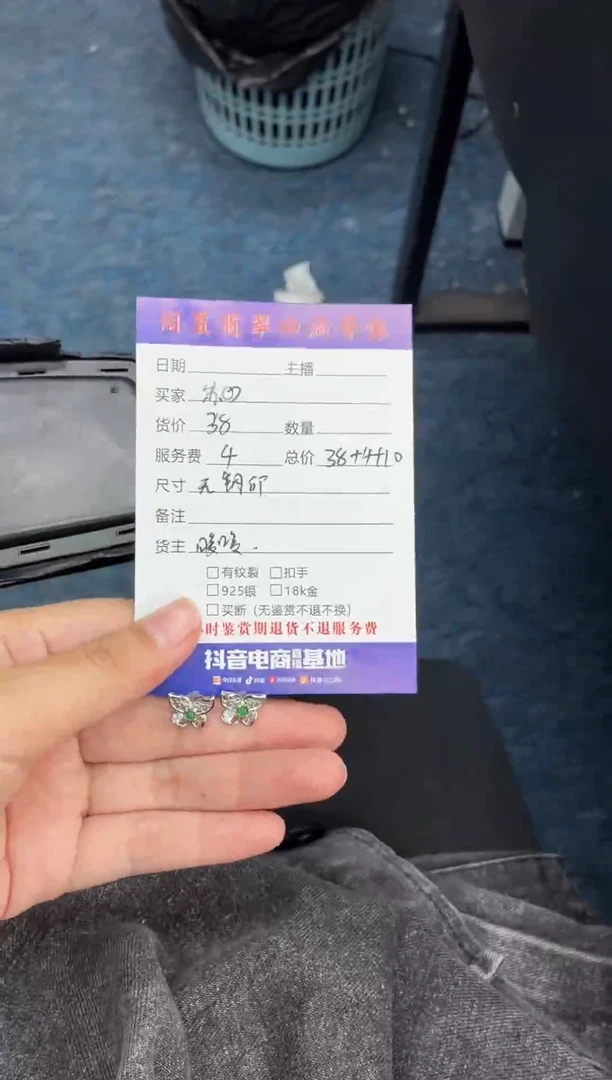 日期 主播
买家
货价 38 数量
服务费 4 总价 38+4+10
尺寸 无钢印
备注
货主 暖暖.
有纹裂 扣手
925银 18k金
买断（无鉴赏不退不换）
时鉴赏期退货不退服务费
抖音电商直播基地
抖音